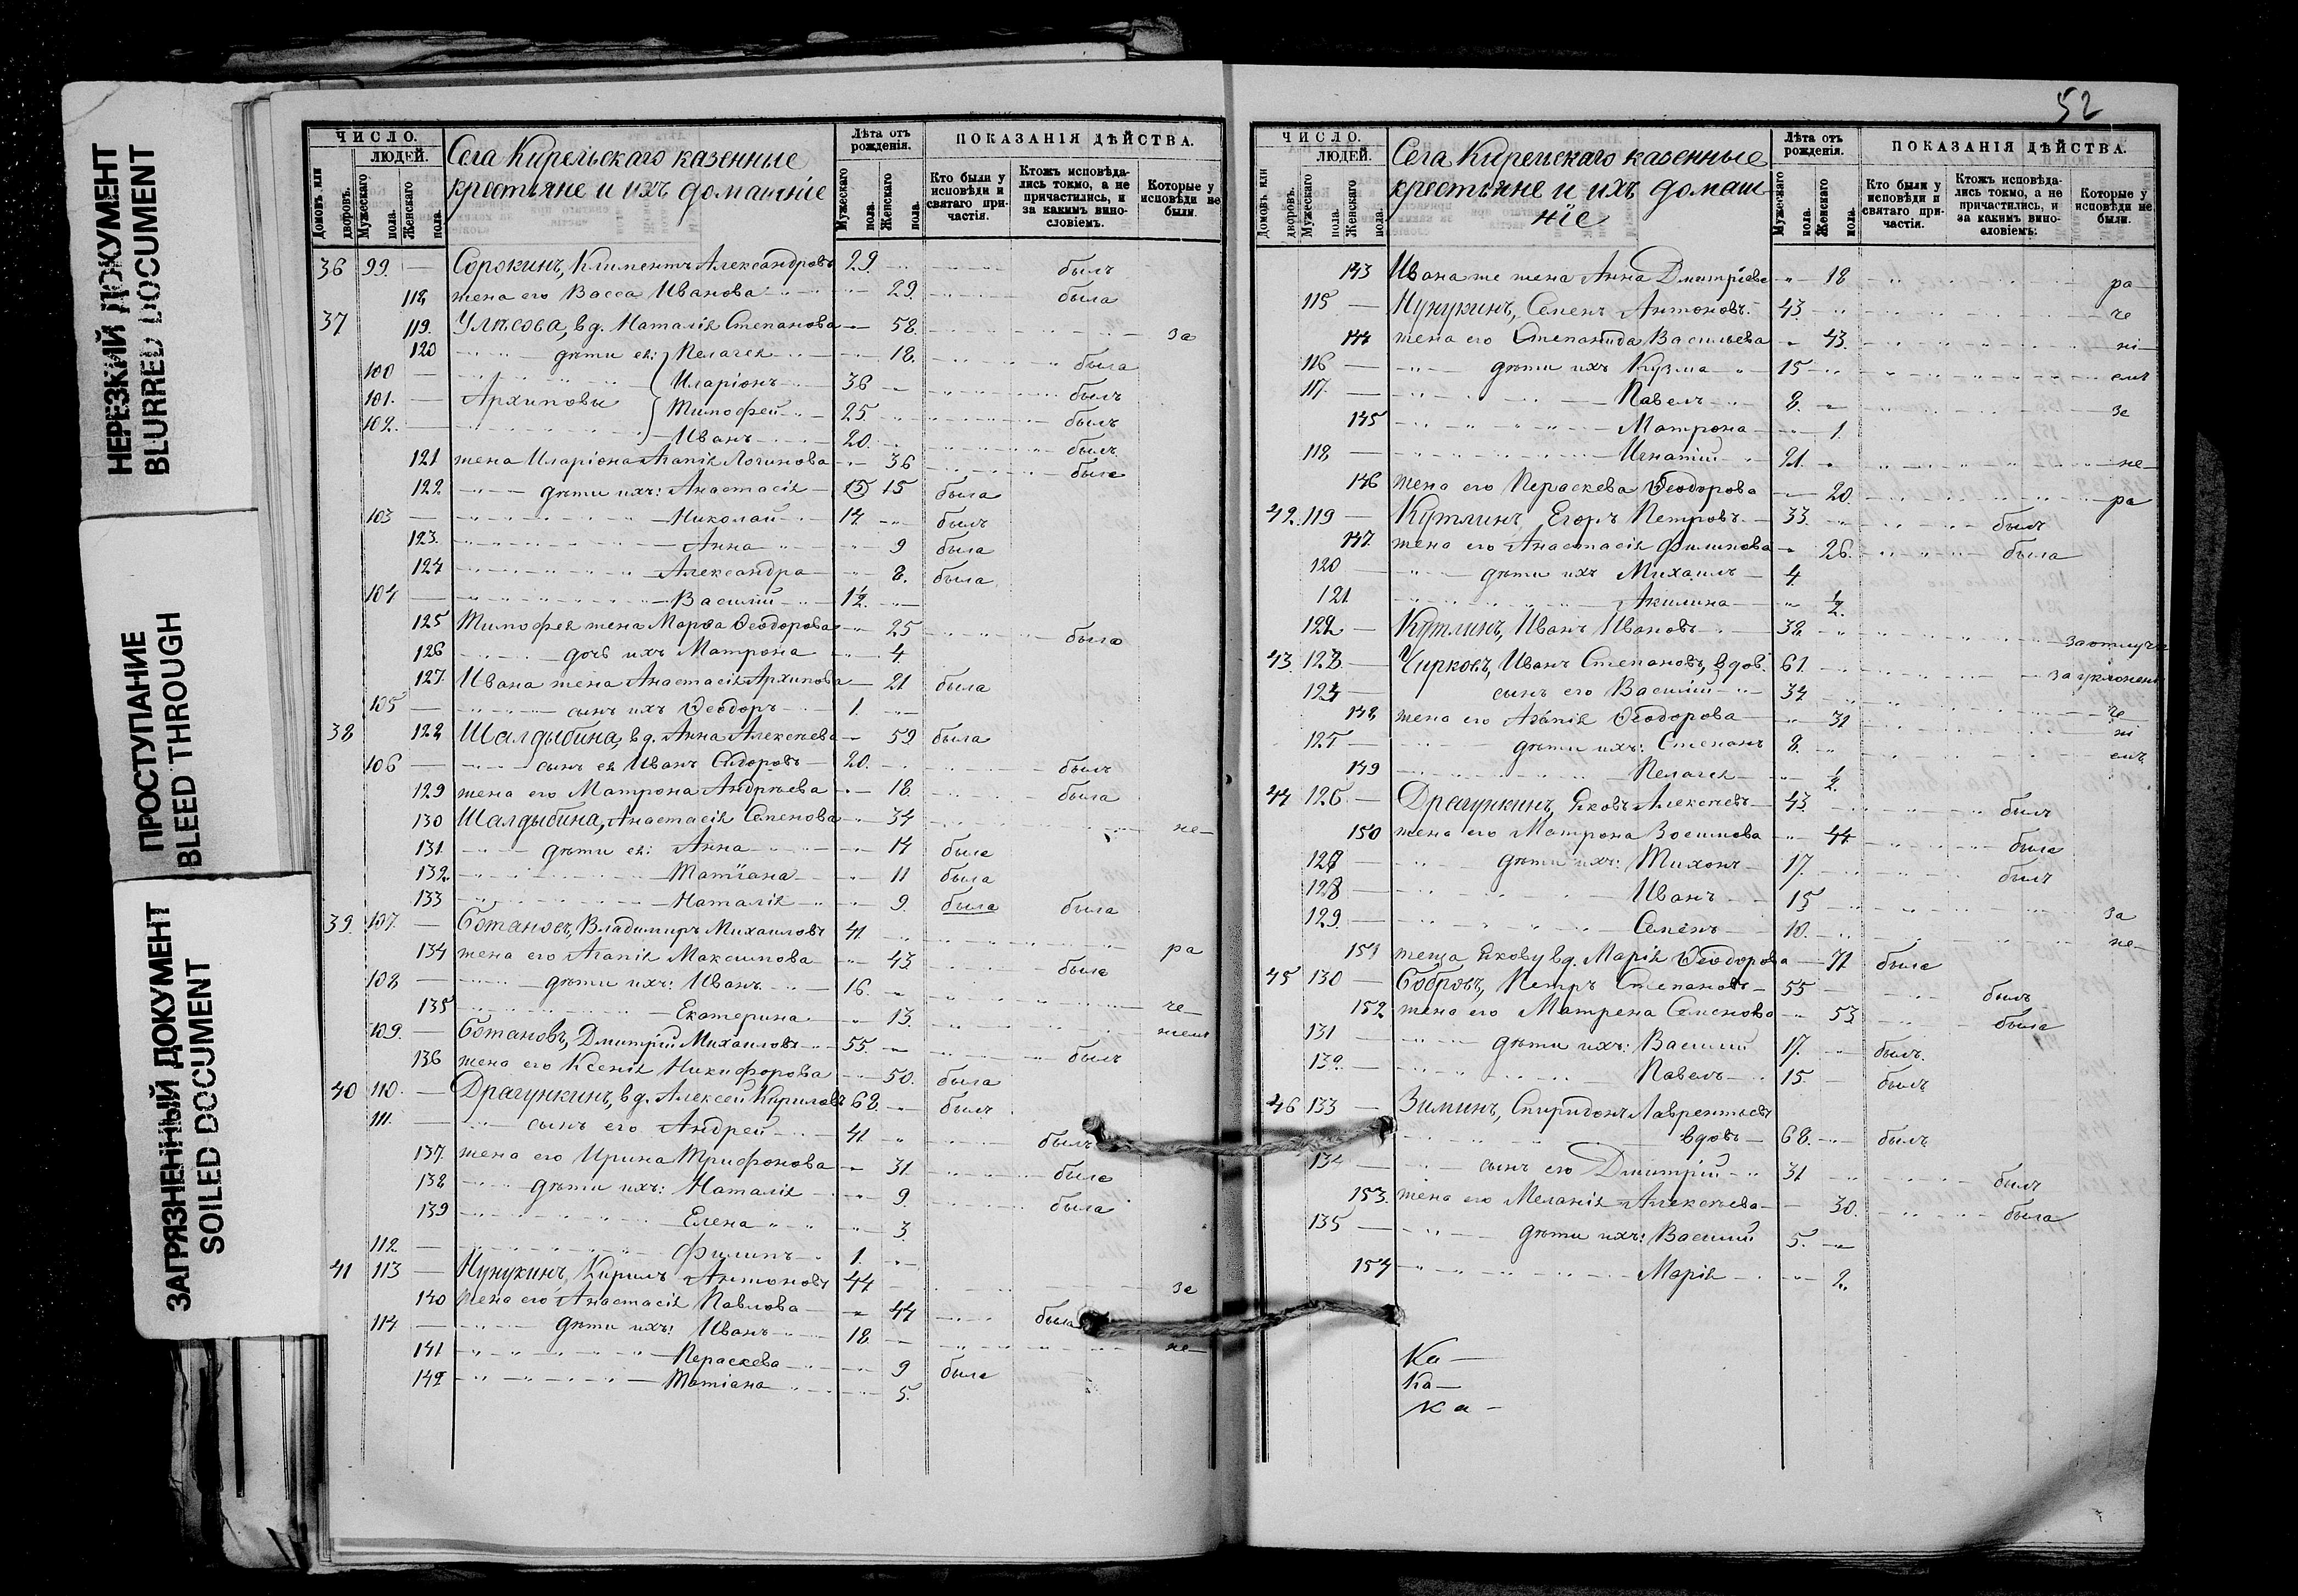 НЕРЕЗКИЙ ДОКУМЕНТ
BLURRED DOCUMENT
ПРОСТУПАНИЕ
BLEED THROUGH
ЗАГРЯЗНЕННЫЙ ДОКУМЕНТ
SOILED DOCUMENT
ЧИСЛО.
ЛЮДЕЙ.
Домовъ или дворовъ.
Мужескаго пола.
Женскаго пола.
Села Кирельскаго казенные
крестьяне и ихъ домашнiе
Лѣта отъ рожденія.
Мужескаго пола.
Женскаго пола.
ПОКАЗАНІЯ ДѢЙСТВА.
Кто были у исповѣди и святаго причастія.
Ктожъ исповѣдались токмо, а не причастились, и за какимъ винословіемъ.
Которые у исповѣди не были.
36 99. — Сорокинъ, Климентъ Александровъ 29. былъ
118 жена его Васса Иванова 29. была
37 119. Улѣсова, вд. Наталія Степанова 58. за
120 дѣти ея: Пелагея 18. была
100 — Иларіонъ 36 былъ
101. — Архиповы Тимофей 25. былъ
102. — Иванъ 20. былъ
121 жена Иларіона Агапія Логинова 36 была
122 дѣти ихъ: Анастасія 15 15 была
103 — Николай 14 былъ
123. Анна 9 была
124 Александра 8. была
104 — Василій 1½
125 Тимофея жена Марѳа Ѳеодорова 25 была
126 дочь ихъ Матрона 4.
127. Ивана жена Анастасія Архипова 21 была
105 — сынъ ихъ Ѳеодоръ 1.
38 128 Шалдыбина, вд. Анна Алексѣева 59 была
106 — сынъ ея Иванъ Сидоровъ 20. былъ
129 жена его Матрона Андреева 18. была
130 Шалдыбина, Анастасія Семенова 34 не
131. дѣти ея: Анна 14 была
132. Татіана 11 была
133 Наталія 9. была была
39. 107. — Ботановъ, Владимиръ Михаиловъ 41. ра
134 жена его Агапія Максимова 43. была
108 — дѣти ихъ: Иванъ 16. че
135 Екатерина 13. ніемъ
109. — Ботановъ, Дмитрій Михаиловъ 55. былъ
136 жена его Ксенія Никифорова 50. была
40 110. — Драгункинъ, вд. Алексей Кириловъ 68. былъ
111. — сынъ его Андрей 41 былъ
137. жена его Ирина Трифонова 31. была
138 дѣти ихъ: Наталія 9. была
139 Елена 3.
112 — Филипъ 1.
41 113 — Нунукинъ, Кирилъ Антоновъ 44 за
140 жена его Анастасія Павлова 44 была
114 — дѣти ихъ: Иванъ 18 не
141 Пераскева 9 была
142 Татіана 5.
52
ЧИСЛО.
ЛЮДЕЙ.
Домовъ или дворовъ.
Мужескаго пола.
Женскаго пола.
Села Кирельскаго казенные
крестьяне и ихъ домаш
нiе
Лѣта отъ рожденія.
Мужескаго пола.
Женскаго пола.
ПОКАЗАНІЯ ДѢЙСТВА.
Кто были у исповѣди и святаго причастія.
Ктожъ исповѣдались токмо, а не причастились, и за какимъ винословіемъ:
Которые у исповѣди не были.
143 Ивана же жена Анна Дмитріева 18 ра
115 — Нунукинъ, Семенъ Антоновъ 43. че
144 жена его Степанида Васильева 43. ні
116 — дѣти ихъ Кузма 15 емъ
117. — Павелъ 8. за
145 Матрона 1.
118 — Игнатій 21. не
146 жена его Пераскева Ѳеодорова 20. ра
42. 119 — Кутлинъ, Егоръ Петровъ 33. былъ
147. жена его Анастасія Филипова 26. была
120 дѣти ихъ Михаилъ 4.
121 Акилина ½
122 — Кутлинъ, Иванъ Ивановъ 32
43. 123 — Чирковъ, Иванъ Степановъ, вдов. 61.
124 — сынъ его Василій 34 че
148 жена его Агапія Ѳеодорова 31 ні
125 — дѣти ихъ: Степанъ 8. емъ
149 Пелагея ½
44 126 — Драгункинъ, Яковъ Алексѣевъ 43. былъ
150 жена его Матрона 44 была
127 — дѣти ихъ: Тихонъ 17. былъ
128 — Иванъ 15 за
129 — Семёнъ 10. не
151 теща Якову вд. Марія Ѳеодорова 71 была
45 130 — Бобровъ, Петръ Степановъ 55 былъ
152 жена его Матрена Семенова 53. была
131 — дѣти ихъ: Василій 17. былъ
132. — Павелъ 15. былъ
46 133 — Зиминъ, Спиридонъ Лаврентьевъ
вдовъ 68. былъ
134 — сынъ его Дмитрій 31 былъ
153. жена его Меланія Алексѣева 30. была
135 — дѣти ихъ: Василій 5.
154 Марія 2.
Ка —
Ка —
Ка —